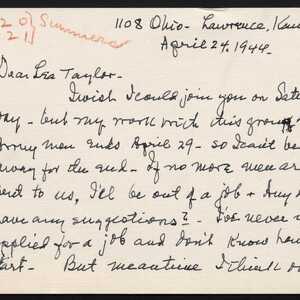 20) Summers
21)
1108 Ohio - Lawrence, Kan
April 24, 1944.
Dear Les Taylor -
I wish I could join you on Satu
day - but my work with this group
army men ends April 29 - so I can't be
away for the end - if no more men are
sent to us, I'll be out of a job +
have any suggestions? - I've never
applied for a job and don't know how
start. - But meantime I think